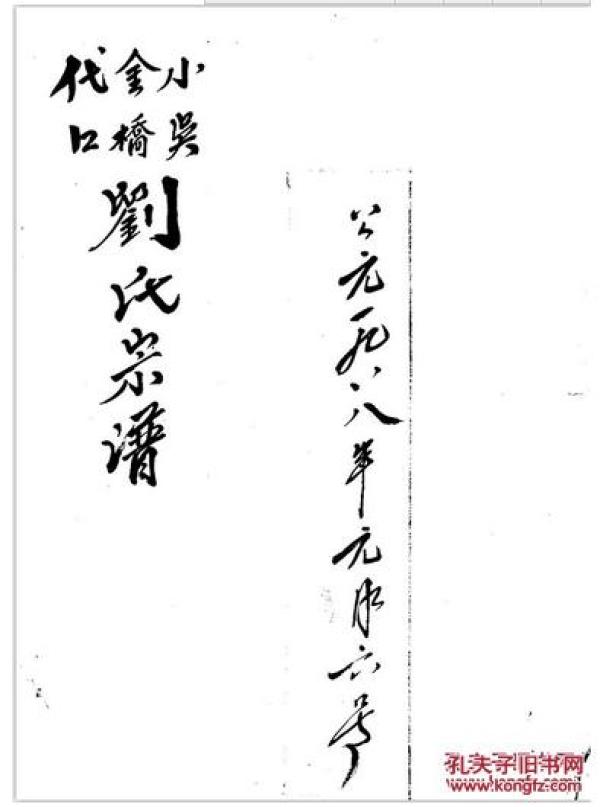 公元一九八八年元月六号
小吴
金橋
代口
劉氏宗譜
孔夫子旧书网
www.kongfz.com